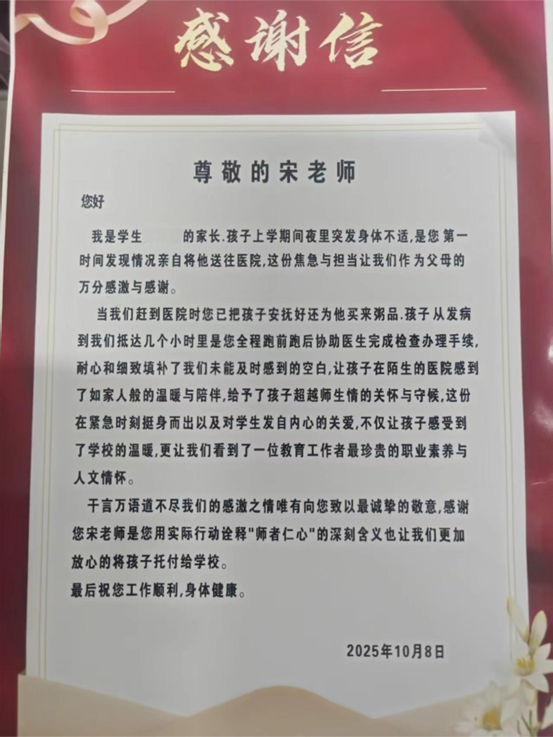 感谢信
尊敬的宋老师
您好
我是学生 的家长.孩子上学期间夜里突发身体不适,是您 第一
时间发现情况亲自将他送往医院,这份焦急与担当让我们作 为父母的
万分感激与感谢。
当我们赶到医院时您已把孩子安抚好还为他买来粥品.孩子从发病
到我们抵达几个小时里是您全程跑前跑后协助医生完成检查办理手续,
耐心和细致填补了我们未能及时感到的空白,让孩子在陌生的医院感到
了如家人般的温暖与陪伴,给予了孩子超越师生情的关怀与守候,这份
在紧急时刻挺身而出以及对学生发自内心的关爱,不仅让孩子感受到
了学校的温暖,更让我们看到了一位教育工作者最珍贵的职业素养与
人文情怀。
千言万语道不尽我们的感激之情唯有向您致以最诚挚的敬意,感谢
您宋老师是您用实际行动诠释"师者仁心"的深刻含义也让我们更加
放心的将孩子托付给学校。
最后祝您工作顺利,身体健康。
2025年10月8日